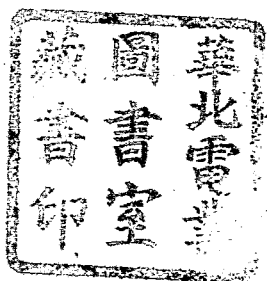 華北電
圖書室
藏書印